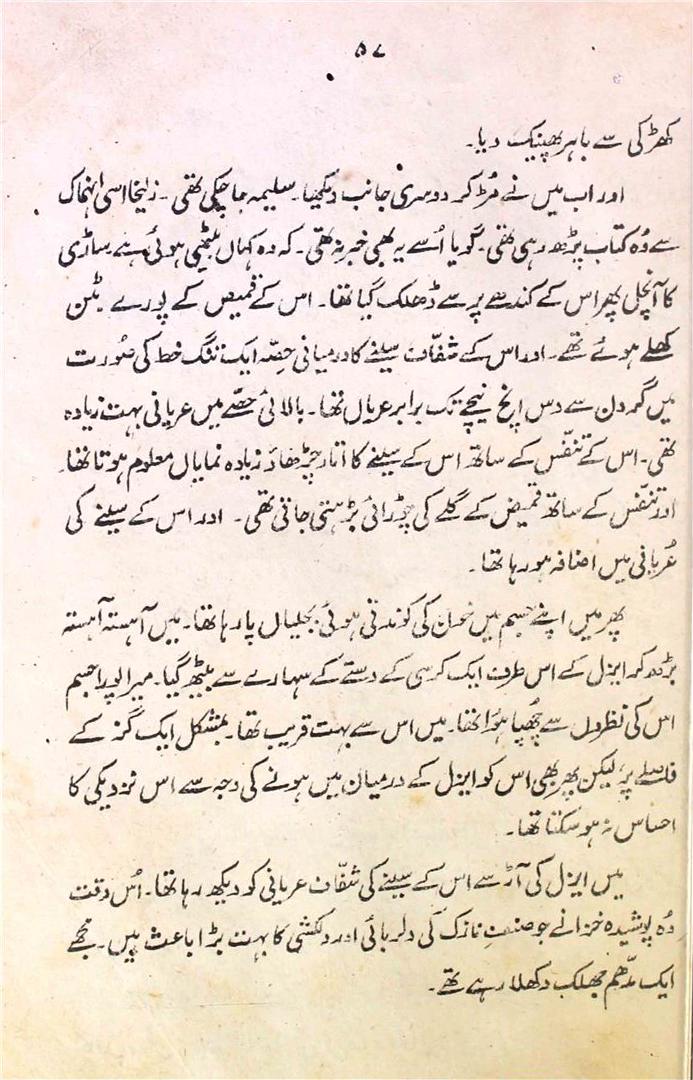 ۵۷
کھڑکی سے باہر پھینک دیا۔
اور اب میں نے مُڑ کر دوسری جانب دیکھا۔ سلیمہ جا چکی تھی۔ زلیخا اسی انہماک
سے وُہ کتاب پڑھ رہی تھی۔ گویا اُسے یہ بھی خبر نہ تھی۔ کہ وہ کہاں بیٹھی ہوئی ہے ساڑی
کا آنچل پھر اس کے کندھے پر سے ڈھلک گیا تھا۔ اس کے قمیض کے پورے بٹن
کھلے ہوئے تھے۔ اور اس کے شفّاف سینے کا درمیانی حِصّہ ایک تنگ خط کی صُورت
میں گردن سے دس اِنچ نیچے تک برابر عریاں تھا۔ بالائی حصّے میں عریانی بہت زیادہ
تھی۔ اس کے تنفّس کے ساتھ اس کے سینے کا اتار چڑھاؤ زیادہ نمایاں معلوم ہوتا تھا۔
اور تنفّس کے ساتھ قمیض کے گلے کی چوڑائی بڑھتی جاتی تھی۔ اور اس کے سینے کی
عُریانی میں اضافہ ہو رہا تھا۔
پھر میں اپنے جسم میں خون کی کوندتی ہوئی بجلیاں پا رہا تھا۔ میں آہستہ آہستہ
بڑھ کر ایزل کے اس طرف ایک کرسی کے دستے کے سہارے سے بیٹھ گیا۔ میرا پورا جسم
اس کی نظروں سے چُھپا ہؤا تھا۔ میں اس سے بہت قریب تھا۔ بمشکل ایک گز کے
فاصلے پر، لیکن پھر بھی اس کو ایزل کے درمیان میں ہونے کی وجہ سے اس نزدیکی کا
احساس نہ ہو سکتا تھا۔
میں ایزل کی آڑ سے اس کے سینے کی شفّاف عریانی کو دیکھ رہا تھا۔ اُس وقت
وُہ پوشیدہ خزانے جو صنفِ نازک کی دلربائی اور دلکشی کا بہت بڑا باعث ہیں۔ مجھے
ایک مدّھم جھلک دکھلا رہے تھے۔